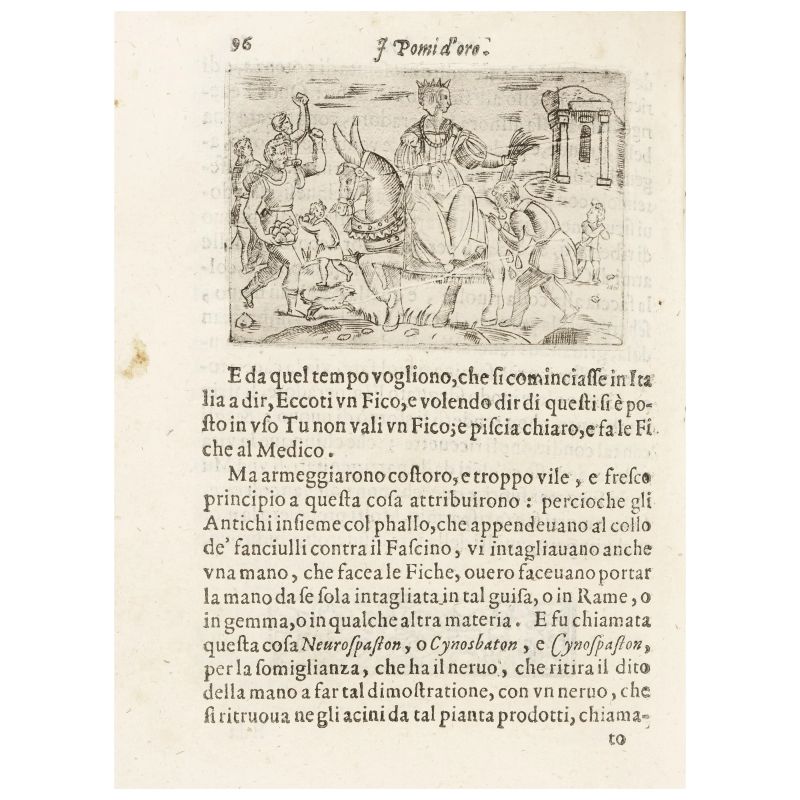 96
I Pomi d'oro.
E da quel tempo vogliono, che ſi cominciaſſe in Ita
lia a dir, Eccoti vn Fico, e volendo dir di queſti ſi è po-
ſto in vſo Tu non vali vn Fico; e piſcia chiaro, e fa le Fi
che al Medico.
Ma armeggiarono coſtoro, e troppo vile, e freſco
principio a queſta coſa attribuirono: percioche gli
Antichi inſieme col phallo, che appendeuano al collo
de' fanciulli contra il Faſcino, vi intagliauano anche
vna mano, che facea le Fiche, ouero faceuano portar
la mano da ſe ſola intagliata in tal guiſa, o in Rame, o
in gemma, o in qualche altra materia. E fu chiamata
queſta coſa Neuroſpaſton, o Cynosbaton, e Cynoſpaſton,
per la ſomiglianza, che ha il neruo, che ritira il dito
della mano a far tal dimoſtratione, con vn neruo, che
ſi ritruoua negli acini da tal pianta prodotti, chiama-
to